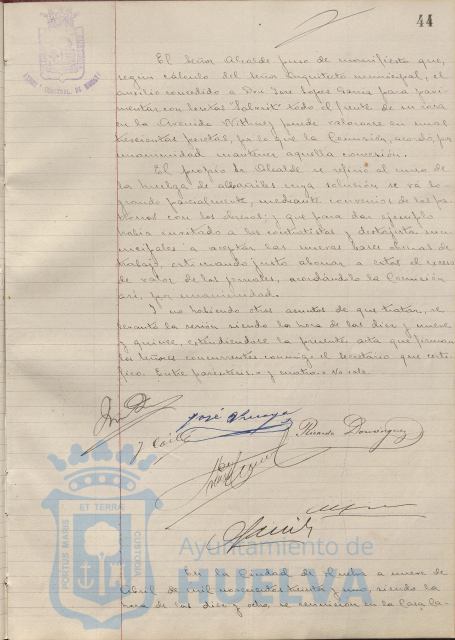 44
El Señor Alcalde puso de manifiesto que,
según cálculo del Señor Arquitecto municipal, el
auxilio concedido a Don José López Gama para pavi-
mentar con losetas "Solorit" todo el frente de su casa
en la Avenida Withney puede valorarse en unas
trescientas pesetas, por lo que la Comisión, acordó, por
unanimidad mantener aquella concesión.
El propio Sr. Alcalde se refirió al curso de
la huelga de albañiles cuya solución se va lo-
grando parcialmente, mediante convenios de los pa-
tronos con los obreros; y que para dar ejemplo
había invitado a los contratistas y destajistas mu-
nicipales a aceptar las nuevas bases obreras de
trabajo, estimando justo abonar a estos el exceso
de valor de los jornales, acordándolo la Comisión
así, por unanimidad.
Y no habiendo otros asuntos de que tratar, se
levantó la sesión siendo la hora de las diez y nueve
y quince, extendiéndose la presente acta que firman
los Señores concurrentes conmigo el Secretario que certi-
fico. Entre paréntesis, y cuatro. No vale.
José
Ricardo Domínguez
PORTUS MARIS ET TERRAE CUSTODIA
Ayuntamiento de
HUELVA
En la Ciudad de Huelva a nueve de
Abril de mil novecientos treinta y uno, siendo la
hora de las diez y ocho, se reunieron en la Casa Ca-